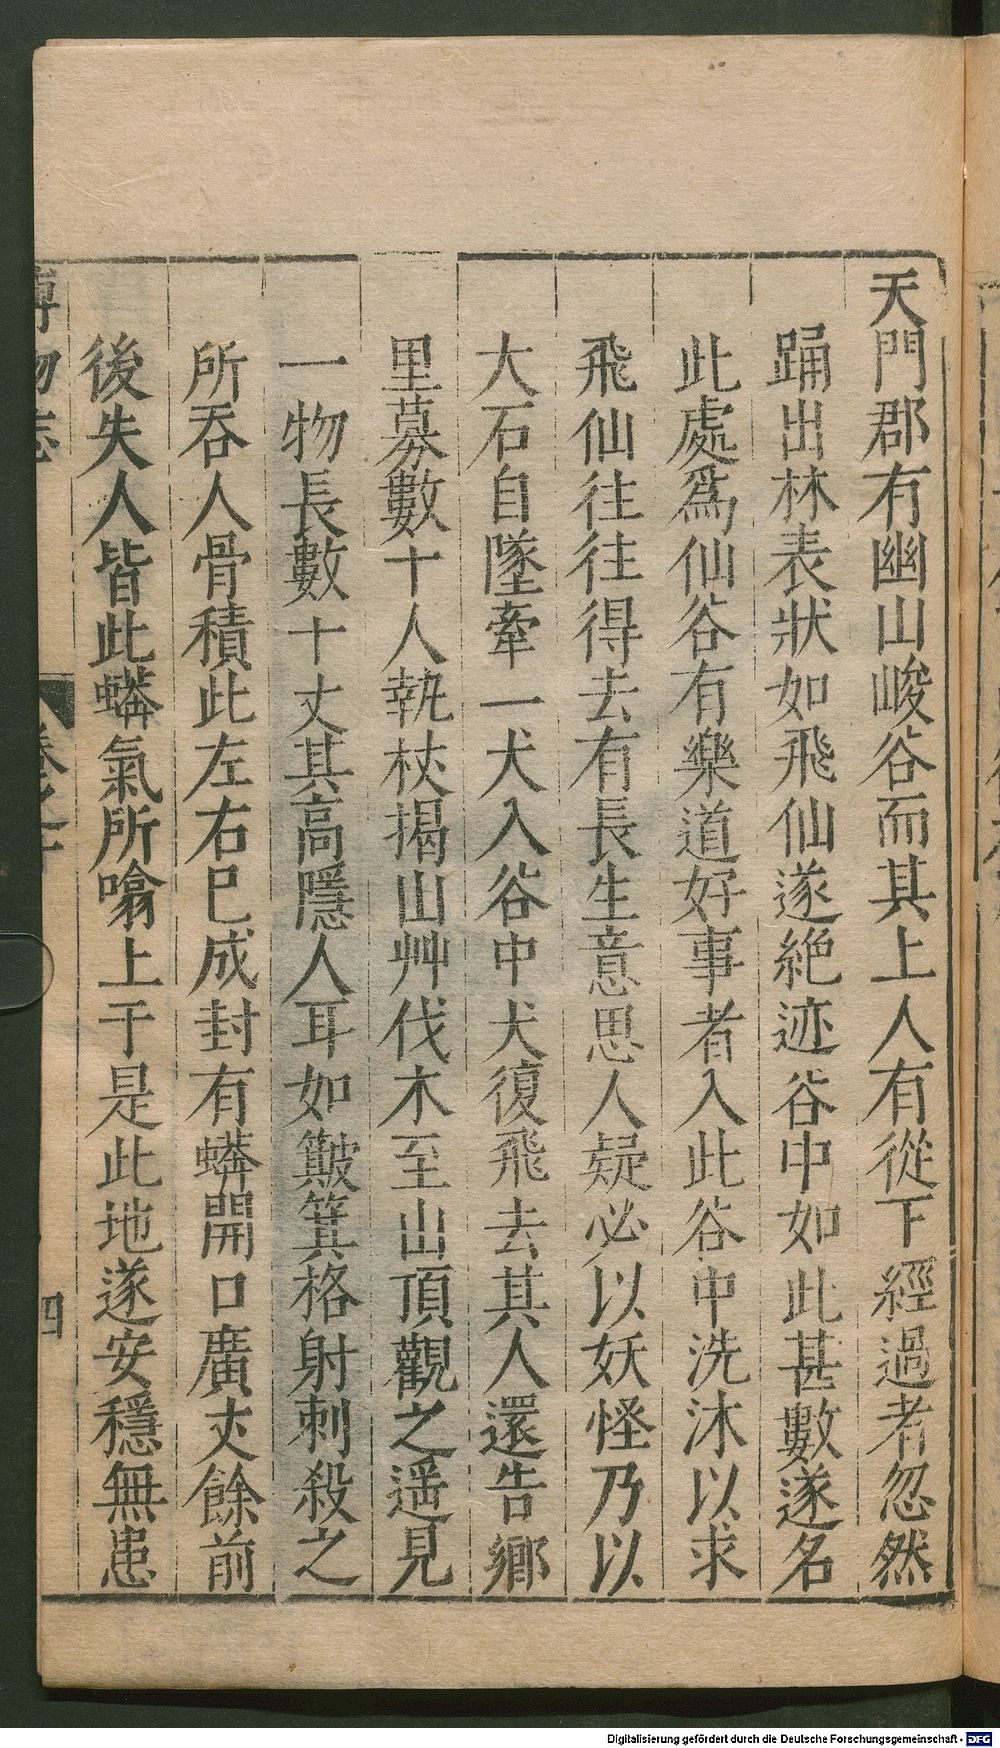 天門郡有幽山峻谷而其上人有從下經過者忽然
踊出林表狀如飛仙遂絶迹谷中如此甚數遂名
此處爲仙谷有樂道好事者入此谷中洗沐以求
飛仙往往得去有長生意思人疑必以妖怪乃以
大石自墜牽一犬入谷中犬復飛去其人還告鄉
里募數十人執杖揭山艸伐木至山頂觀之遥見
一物長數十丈其高隱人耳如簸箕格射刺殺之
所吞人骨積此左右巳成封有蟒開口廣丈餘前
後失人皆此蟒氣所噏上于是此地遂安穩無患
博物志
卷之十
四
Digitalisierung gefördert durch die Deutsche Forschungsgemeinschaft - DFG